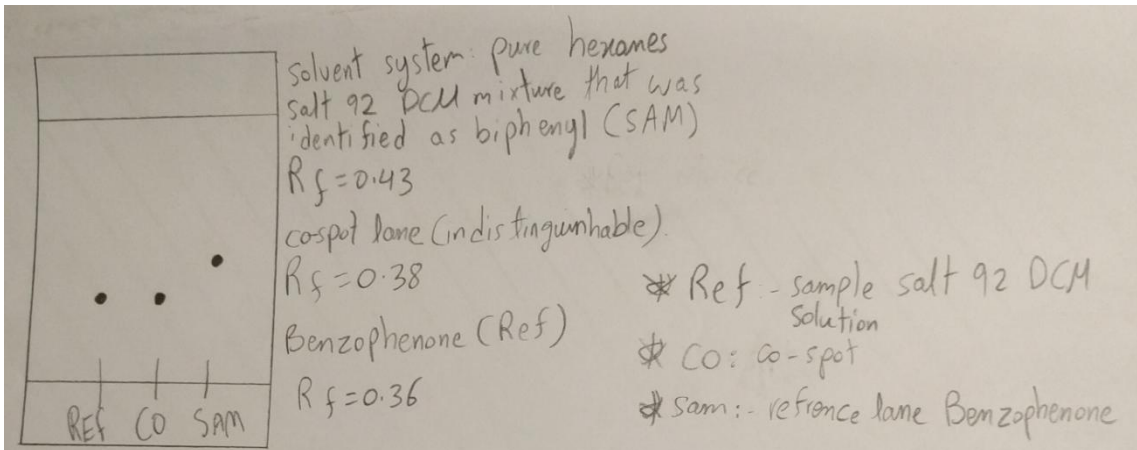 solvent system: pure hexanes
salt 92 DCM mixture that was
identified as biphenyl (SAM)
Rf=0.43
cospot lane (indistinguinhable).
Rf=0.38
Benzophenone (Ref)
Rf=0.36
* Ref - sample salt 92 DCM
solution
* CO: Co-spot
* Sam:- refrence lane Benzophenone
REf CO SAM